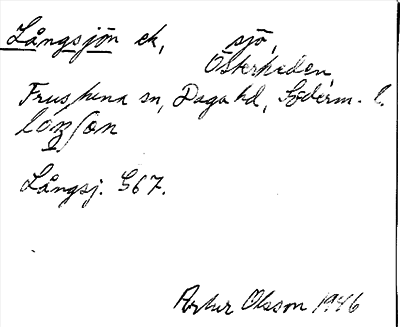 Långsjön ek, sjö,
Österheden,
Frustuna sn, Daga hd, Söderm. l.
Långsj. G67.
Artur Olsson 1946